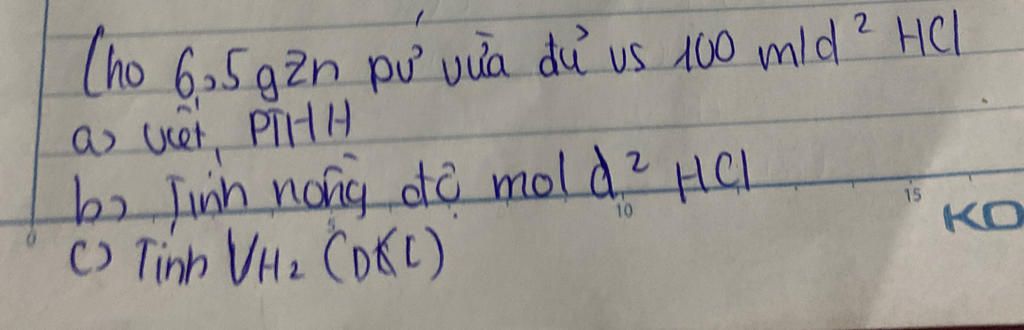 Cho 6,5gZn pứ vừa đủ vs 100 mld² HCl
a) viết PTHH
b) Tính nồng độ mol d² HCl
10
15
KO
c) Tính VH₂ (ĐKC)